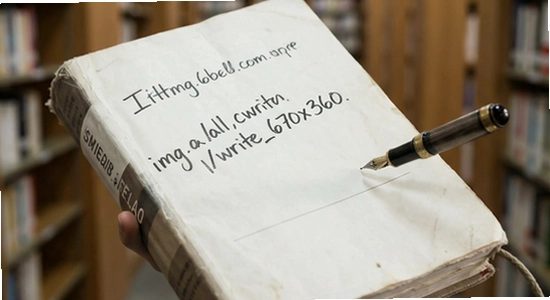 Iittmg.6bell.com.vre
img.a/all,cwritn.
l/write_670x360.
SMIEDIB : FELAO